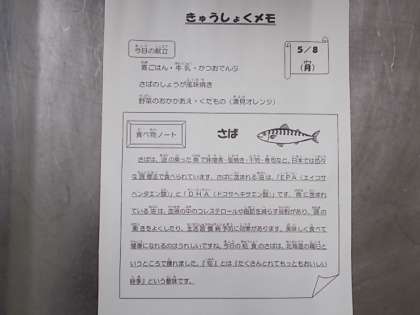 きゅうしょくメモ
今日の献立
5/8
(月)
麦ごはん・牛乳・かつおでんぶ
さばのしょうが風味焼き
野菜のおかかあえ・くだもの(清見オレンジ)
食べ物ノート
さば
さばは、油の乗った魚で味噌煮・塩焼き・干物・寿司など、日本では色々
な調理法で食べられています。さばに含まれる油は、「EPA(エイコサ
ペンタエン酸)」と「DHA(ドコサヘキサエン酸)」です。魚に含まれ
ている油は、血液の中のコレステロールや脂肪を減らす役割があり、頭の
働きをよくしたり、生活習慣病予防に効果があります。美味しく食べて
健康になれるのはうれしいですね。今日の給食のさばは、北海道の毎日と
いうところで獲れました。『旬』とは『たくさんとれてもっともおいしい
時季』という意味です。